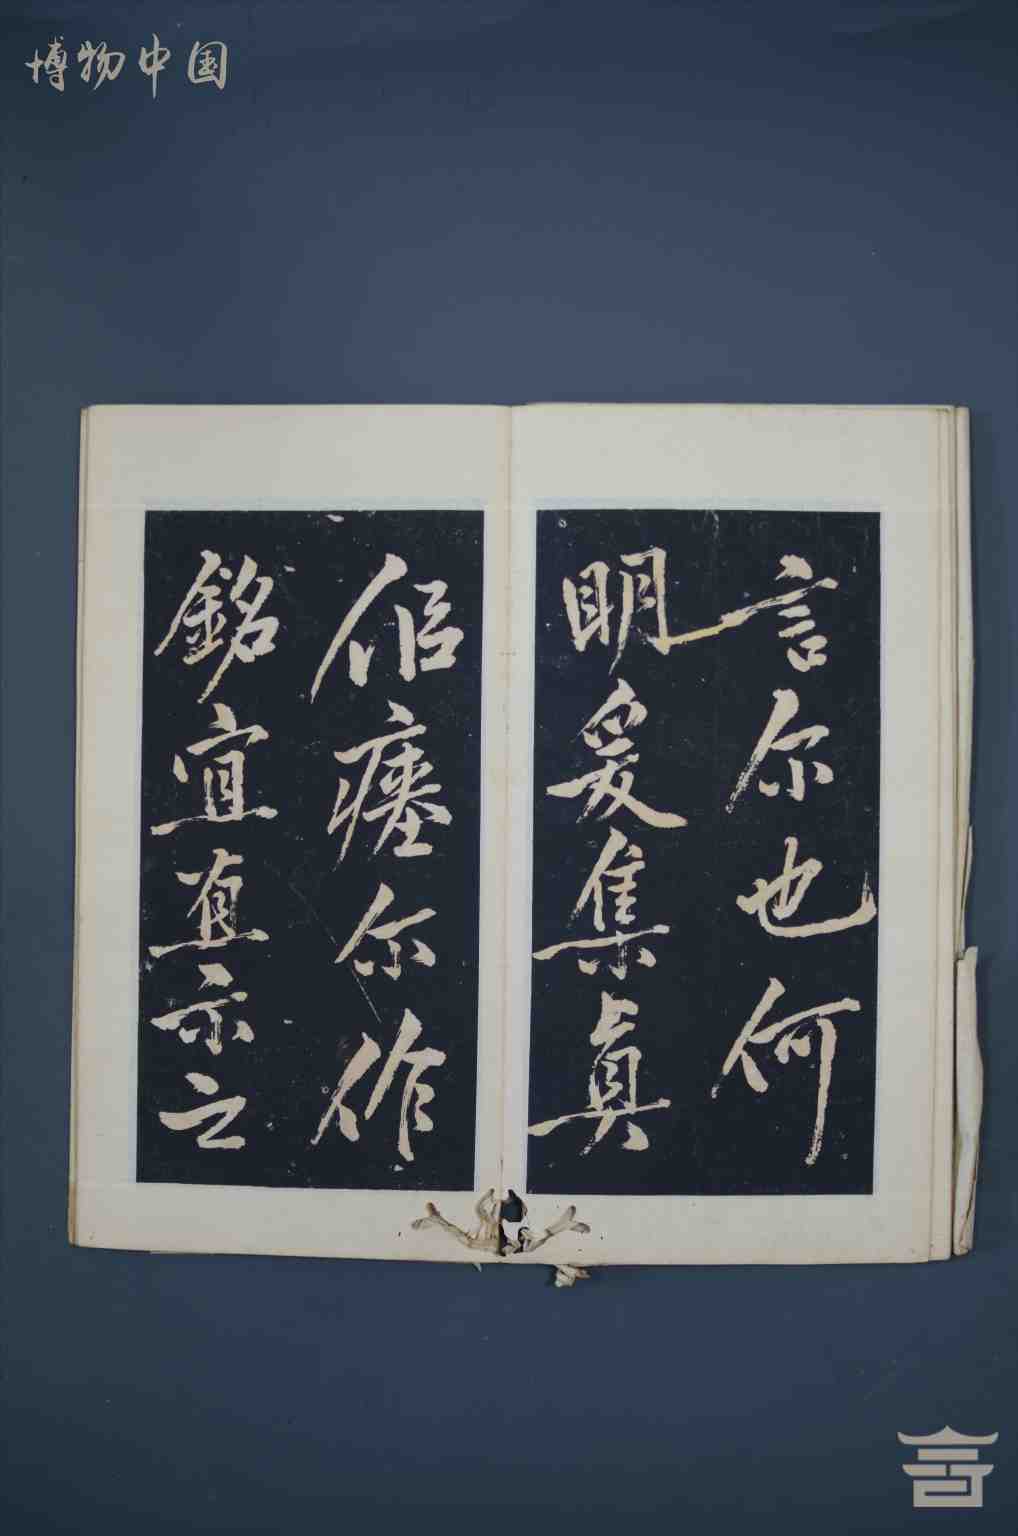 博物中国
言尔也何
明爰集真
侶瘞尔作
銘宜直示之